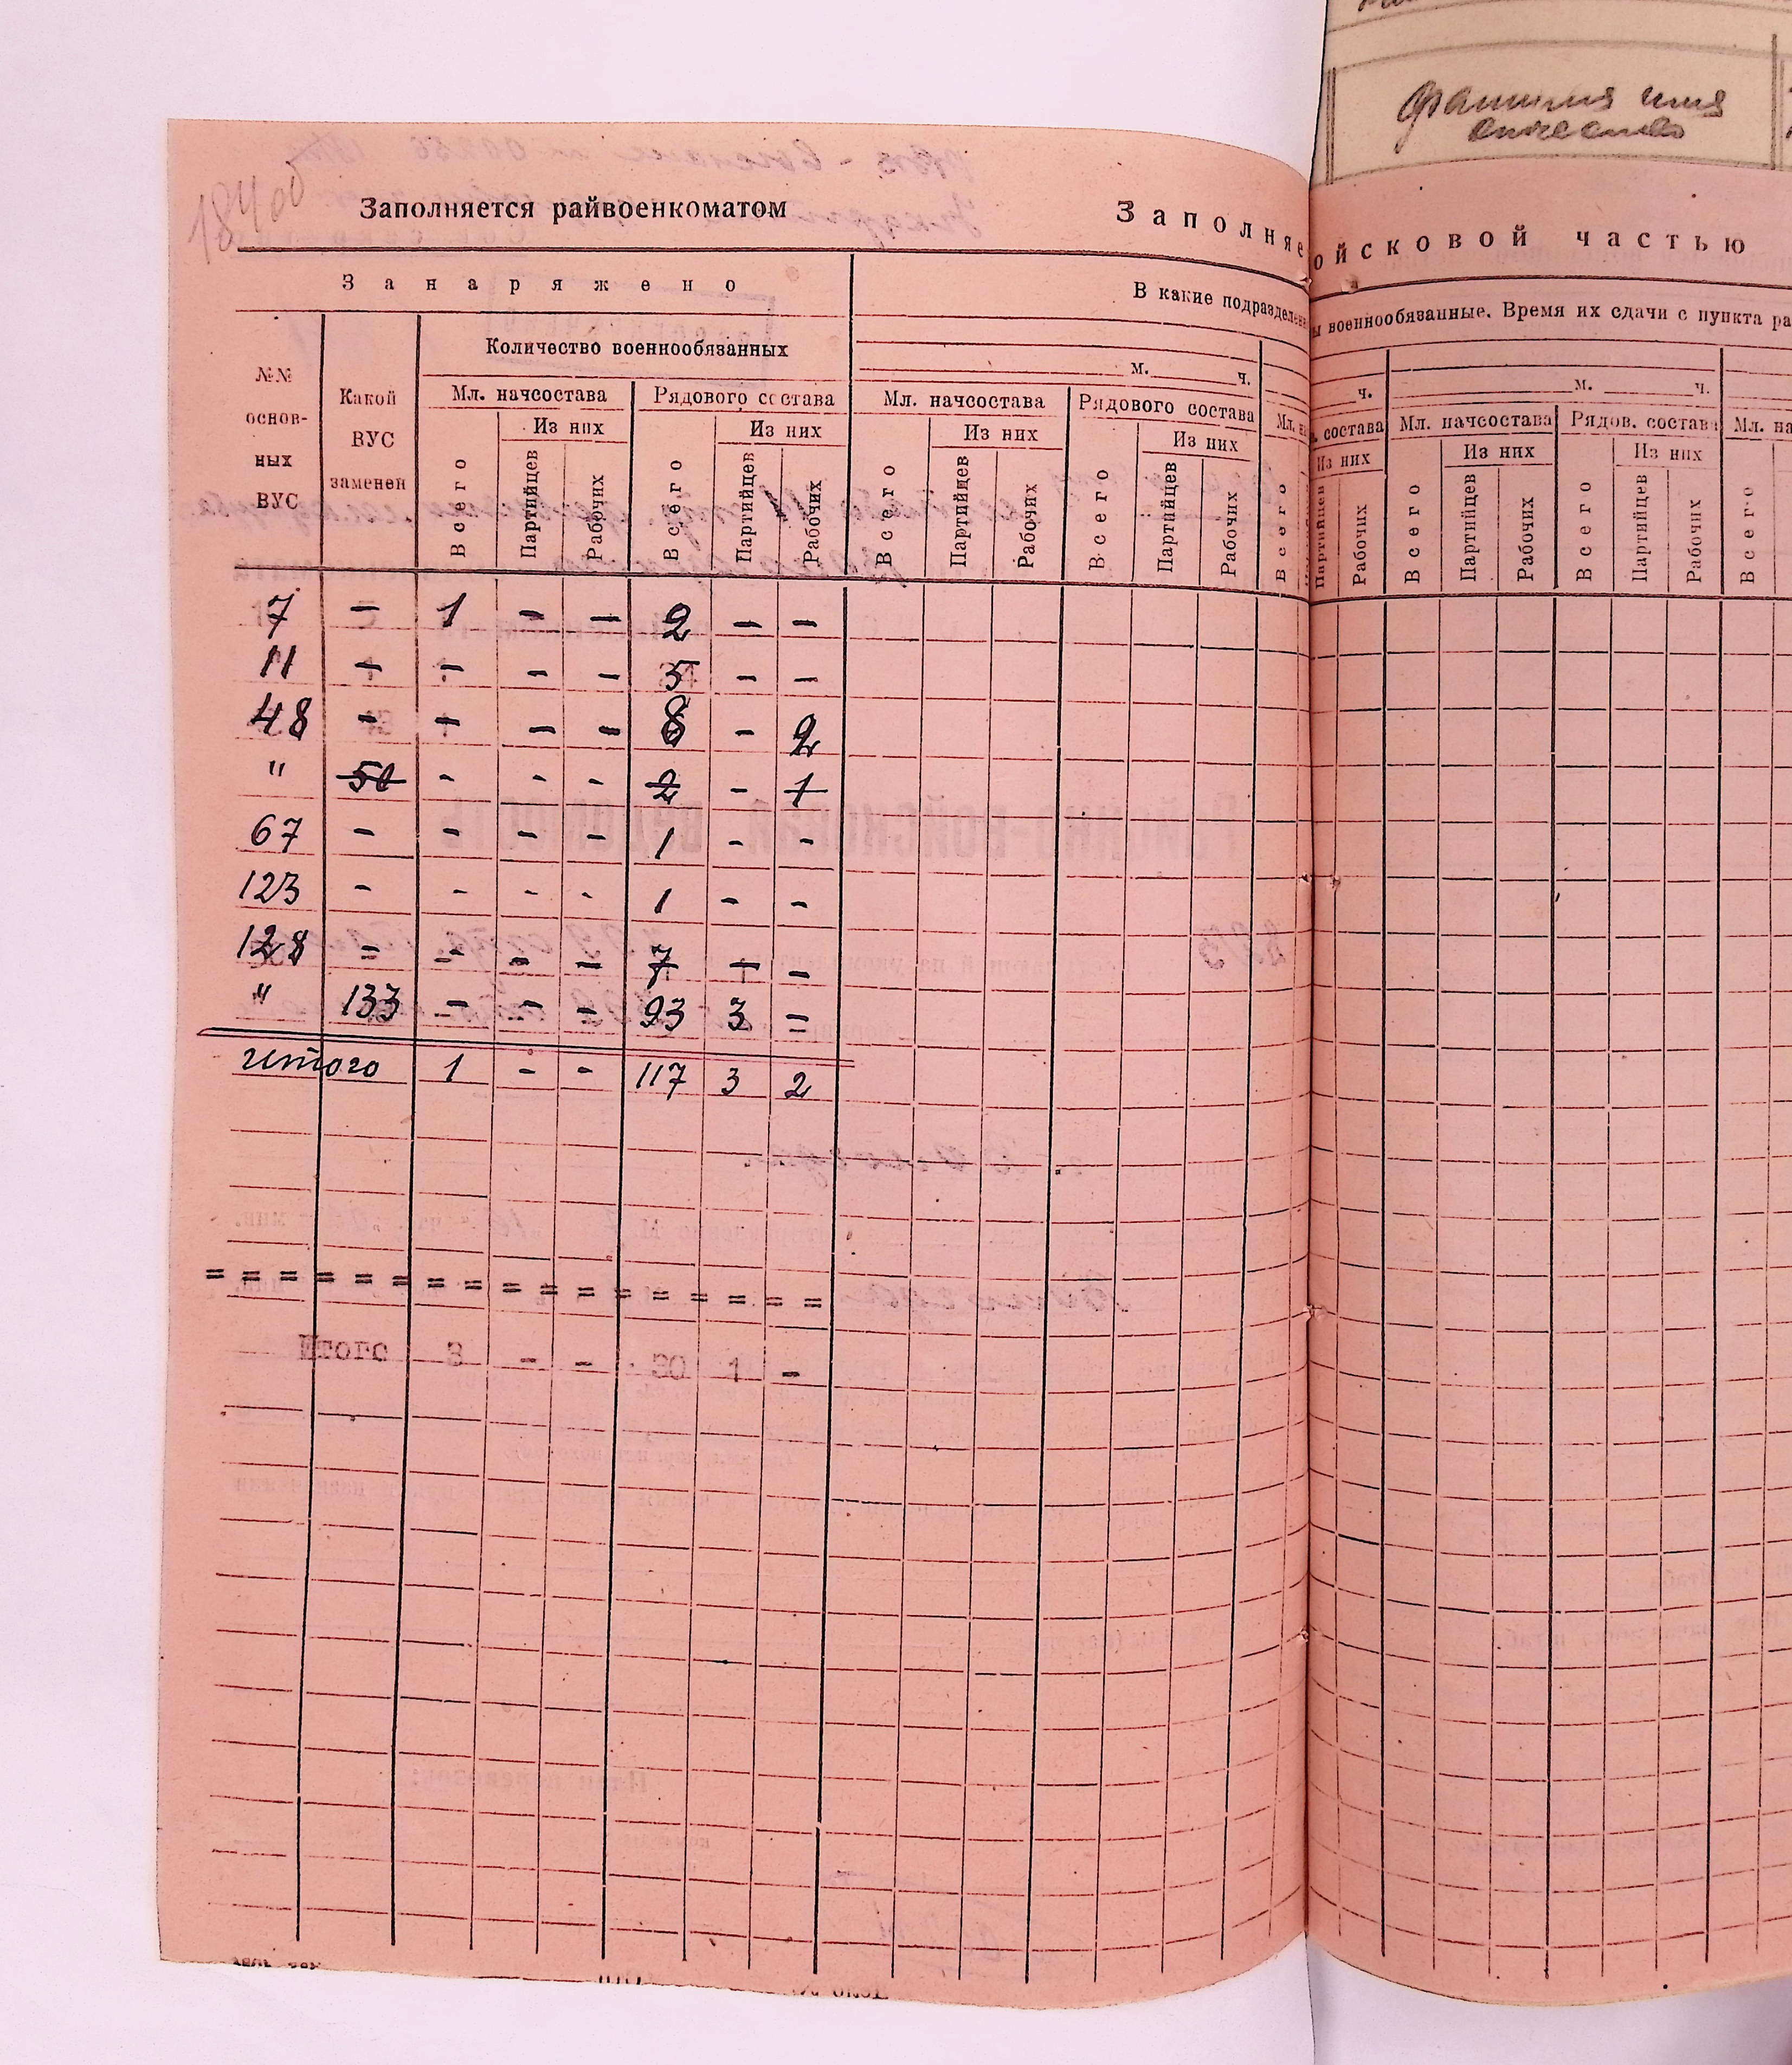 184 об
Заполняется райвоенкоматом
Заполняе ойсковой частью
Занаряжено
В какие подразделен ы военнообязанные. Время их сдачи с пункта ра
№№ основ- ных ВУС
Какой ВУС заменен
Количество военнообязанных
м. ч.
ч.
м. ч.
Мл. начсостава Рядового состава Мл. начсостава Рядового состава Мл. н
. состава Мл. начсостава Рядов. состава Мл. на
Из них Из них Из них Из них Из них Из них Из них
Всего Партийцев Рабочих Всего Партийцев Рабочих Всего Партийцев Рабочих Всего Партийцев Рабочих Всего
Партийцев Рабочих Всего Партийцев Рабочих Всего Партийцев Рабочих Всего
7 – 1 – – 2 – –
11 – – – – 5 – –
48 – – – – 8 – 2
" 50 - - - 2 - 1
67 – – – – 1 – –
123 - - - - 1 - -
128 = - - - 7 - -
" 133 – – – 93 3 =
Итого 1 - - 117 3 2
= = = = = = = = = = = = = = = = =
Итого 3 - - 30 1 -
фамилия имя
отчество